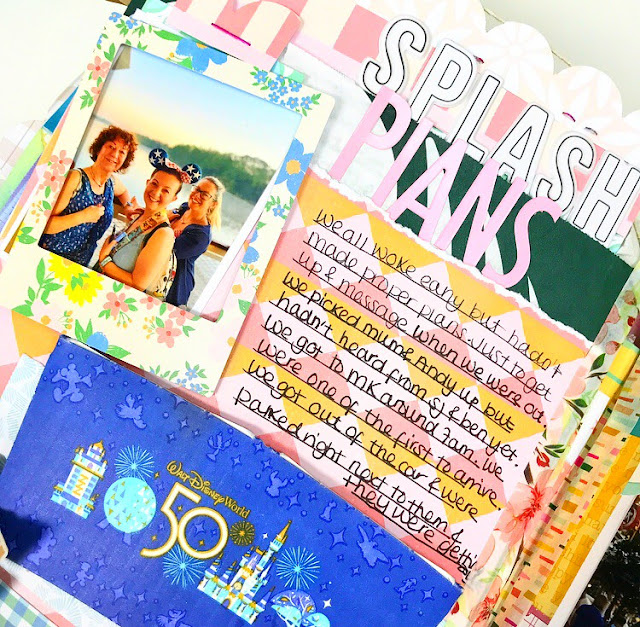 SPLASH
PlANS
we all woke early but hadn't
made proper plans. Just to get
up & message when we were out
we picked mum & Andy up but
hadn't heard from SJ & ben yet.
we got to MK around 7am. we
were one of the first to arrive.
we got out of the car & were
parked right next to them &
they were gettin
WALT DISNEY WORLD
50